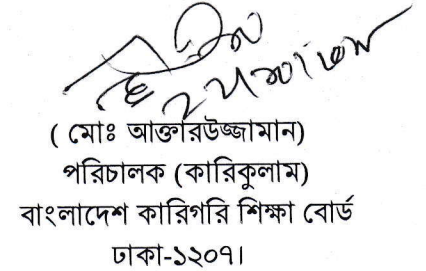 ( মোঃ আক্তারউজ্জামান)
পরিচালক (কারিকুলাম)
বাংলাদেশ কারিগরি শিক্ষা বোর্ড
ঢাকা-১২০৭।